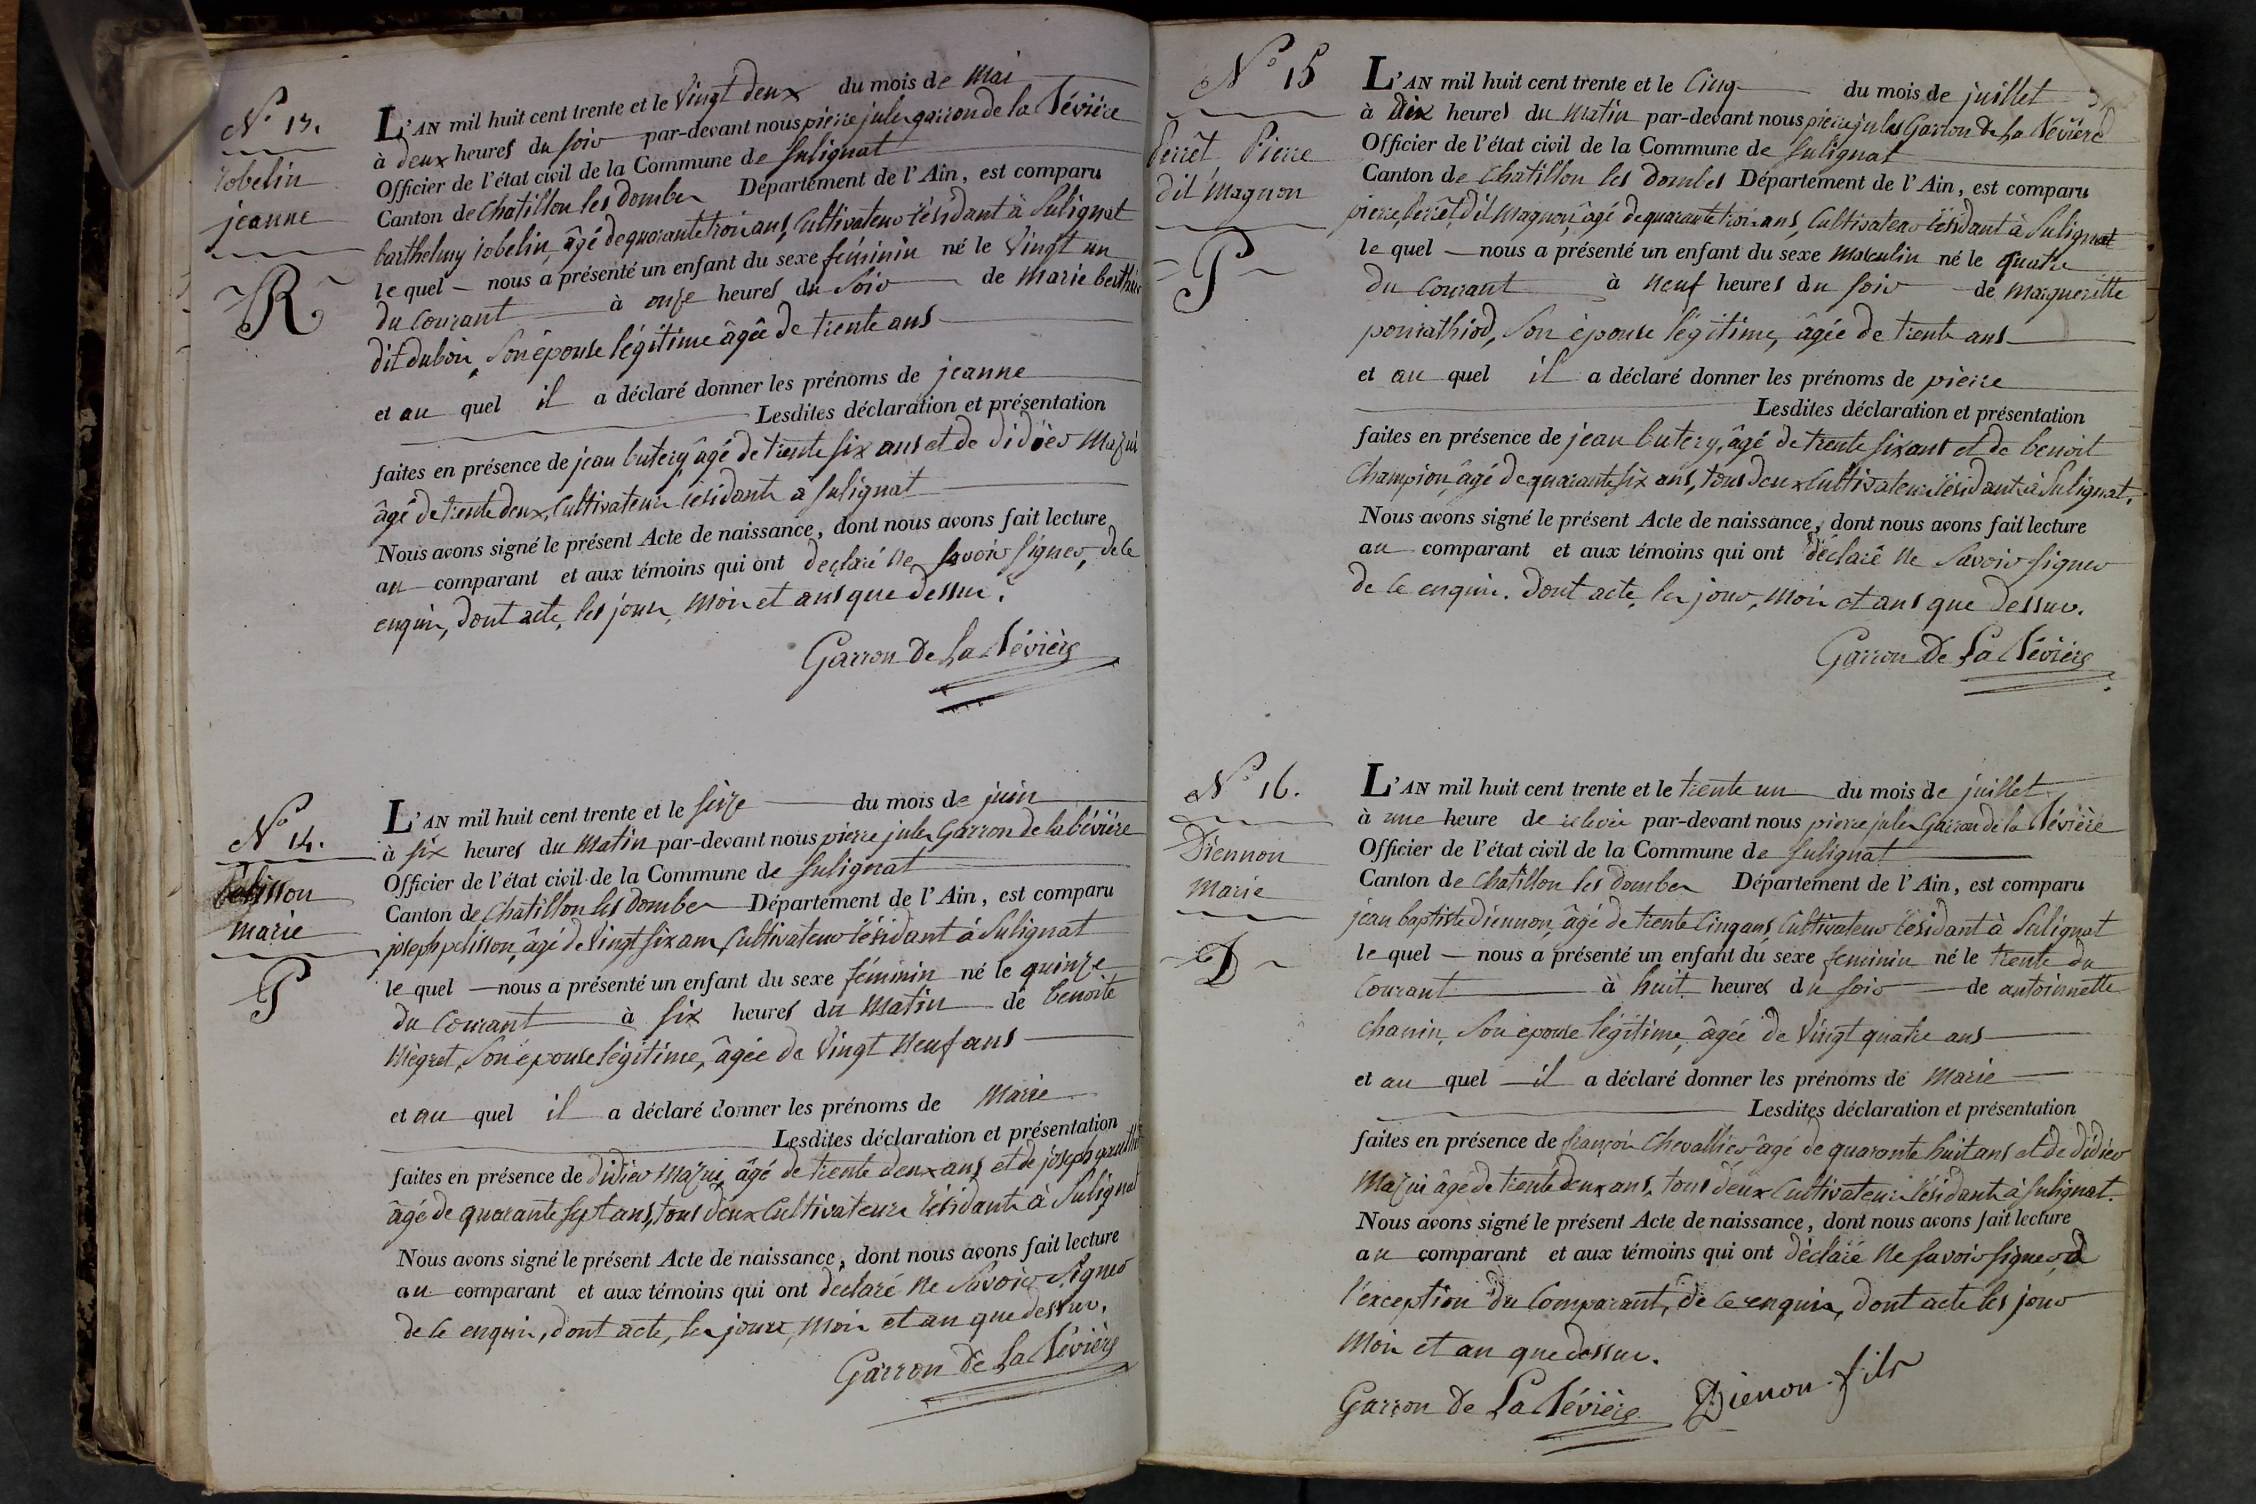 N° 13.
jeanne
R
L'AN mil huit cent trente et le vingt deux du mois de Mai
à deux heures du soir par-devant nous pierre jules garron de la Bévière
Officier de l'état civil de la Commune de Sulignat
Canton de Chatillon les dombes Département de l'Ain, est comparu
barthelmy âgé de quarante trois ans, Cultivateur résidant à Sulignat
le quel nous a présenté un enfant du sexe féminin né le vingt un
du Courant à onze heures du soir de Marie
dit dubois, son épouse légitime âgée de trente ans
et au quel il a déclaré donner les prénoms de jeanne
Lesdites déclaration et présentation
faites en présence de jean butery âgé de trente six ans et de didier Mazui
âgé de trente deux, Cultivateurs résidants à Sulignat
Nous avons signé le présent Acte de naissance, dont nous avons fait lecture
au comparant et aux témoins qui ont declaré ne savoir signer, de ce
enquis, dont acte, les jour, mois et ans que dessus.
Garron de La Bévière
N° 14.
pelisson
marie
P
L'AN mil huit cent trente et le seize du mois de juin
à six heures du Matin par-devant nous pierre jules Garron de la bévière
Officier de l'état civil de la Commune de Sulignat
Canton de Chatillon les dombes Département de l'Ain, est comparu
joseph pelisson, âgé de vingt six ans, Cultivateur résidant à Sulignat
le quel nous a présenté un enfant du sexe féminin né le quinze
du Courant à six heures du Matin de benoite
Miégret, son épouse légitime, âgée de vingt neuf ans
et au quel il a déclaré donner les prénoms de Marie
Lesdites déclaration et présentation
faites en présence de didier Mazui, âgé de trente deux ans, et de joseph
âgé de quarante sept ans, tous deux Cultivateurs résidants à Sulignat
Nous avons signé le présent Acte de naissance, dont nous avons fait lecture
au comparant et aux témoins qui ont declaré ne Savoir Signer
de ce enquis, dont acte, les jours, mois et an que dessus.
Garron de La Bévière
N° 15
Perret Pierre
dit Magnon
P
L'AN mil huit cent trente et le Cinq du mois de juillet
à Dix heures du Matin par-devant nous pierre jules Garron de La Bévière
Officier de l'état civil de la Commune de Sulignat
Canton de Chatillon les dombes Département de l'Ain, est comparu
pierre perrêt dit Magnon, âgé de quarante trois ans, Cultivateur résidant à Sulignat
le quel nous a présenté un enfant du sexe Masculin né le quatre
du Courant à neuf heures du soir de Margueritte
son épouse légitime, âgée de trente ans
et au quel il a déclaré donner les prénoms de pierre
Lesdites déclaration et présentation
faites en présence de jean butery, âgé de trente six ans et de benoit
Champion, âgé de quarante six ans, tous deux Cultivateurs résidants à Sulignat.
Nous avons signé le présent Acte de naissance, dont nous avons fait lecture
au comparant et aux témoins qui ont déclaré ne Savoir signer
de ce enquis. Dont acte, les jour, mois et ans que dessus.
Garron De La Bévière
N° 16.
Diennon
Marie
D
L'AN mil huit cent trente et le trente un du mois de juillet
à une heure de relevée par-devant nous pierre jules Garron de la Bévière
Officier de l'état civil de la Commune de Sulignat
Canton de Chatillon les dombes Département de l'Ain, est comparu
jean baptiste Diennon, âgé de trente Cinq ans, Cultivateur résidant à Sulignat
le quel nous a présenté un enfant du sexe feminin né le trente du
Courant à huit heures du soir de antoinette
Chanin, son épouse légitime, âgée de vingt quatre ans
et au quel il a déclaré donner les prénoms de Marie
Lesdites déclaration et présentation
faites en présence de françois Chevallier âgé de quarante huit ans et de didier
Mazui âgé de trente deux ans, tous deux Cultivateurs résidants à Sulignat.
Nous avons signé le présent Acte de naissance, dont nous avons fait lecture
au comparant et aux témoins qui ont déclaré ne savoir signer, à
l'exception du Comparant, de ce enquis, dont acte les jour
Mois et an que dessus.
Garron de La Bévière Dienon fils